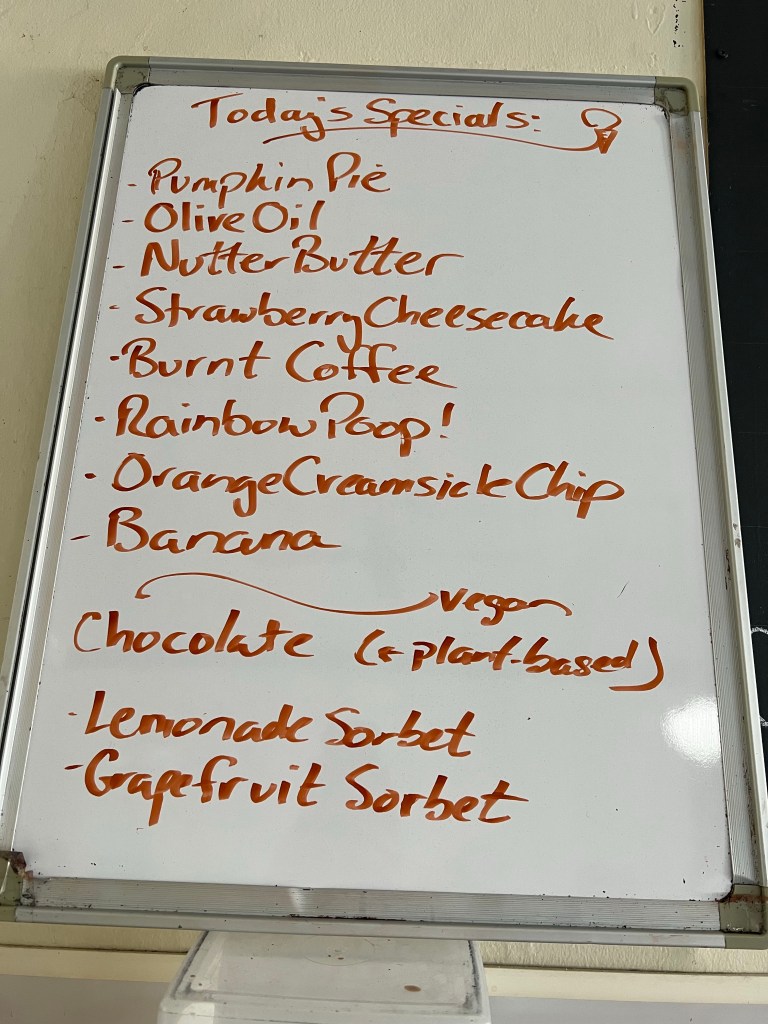 Today's Specials:
- Pumpkin Pie
- Olive Oil
- Nutter Butter
- Strawberry Cheesecake
- Burnt Coffee
- Rainbow Poop!
- Orange Creamsickle Chip
- Banana
vegan
Chocolate (+ plant-based)
- Lemonade Sorbet
- Grapefruit Sorbet